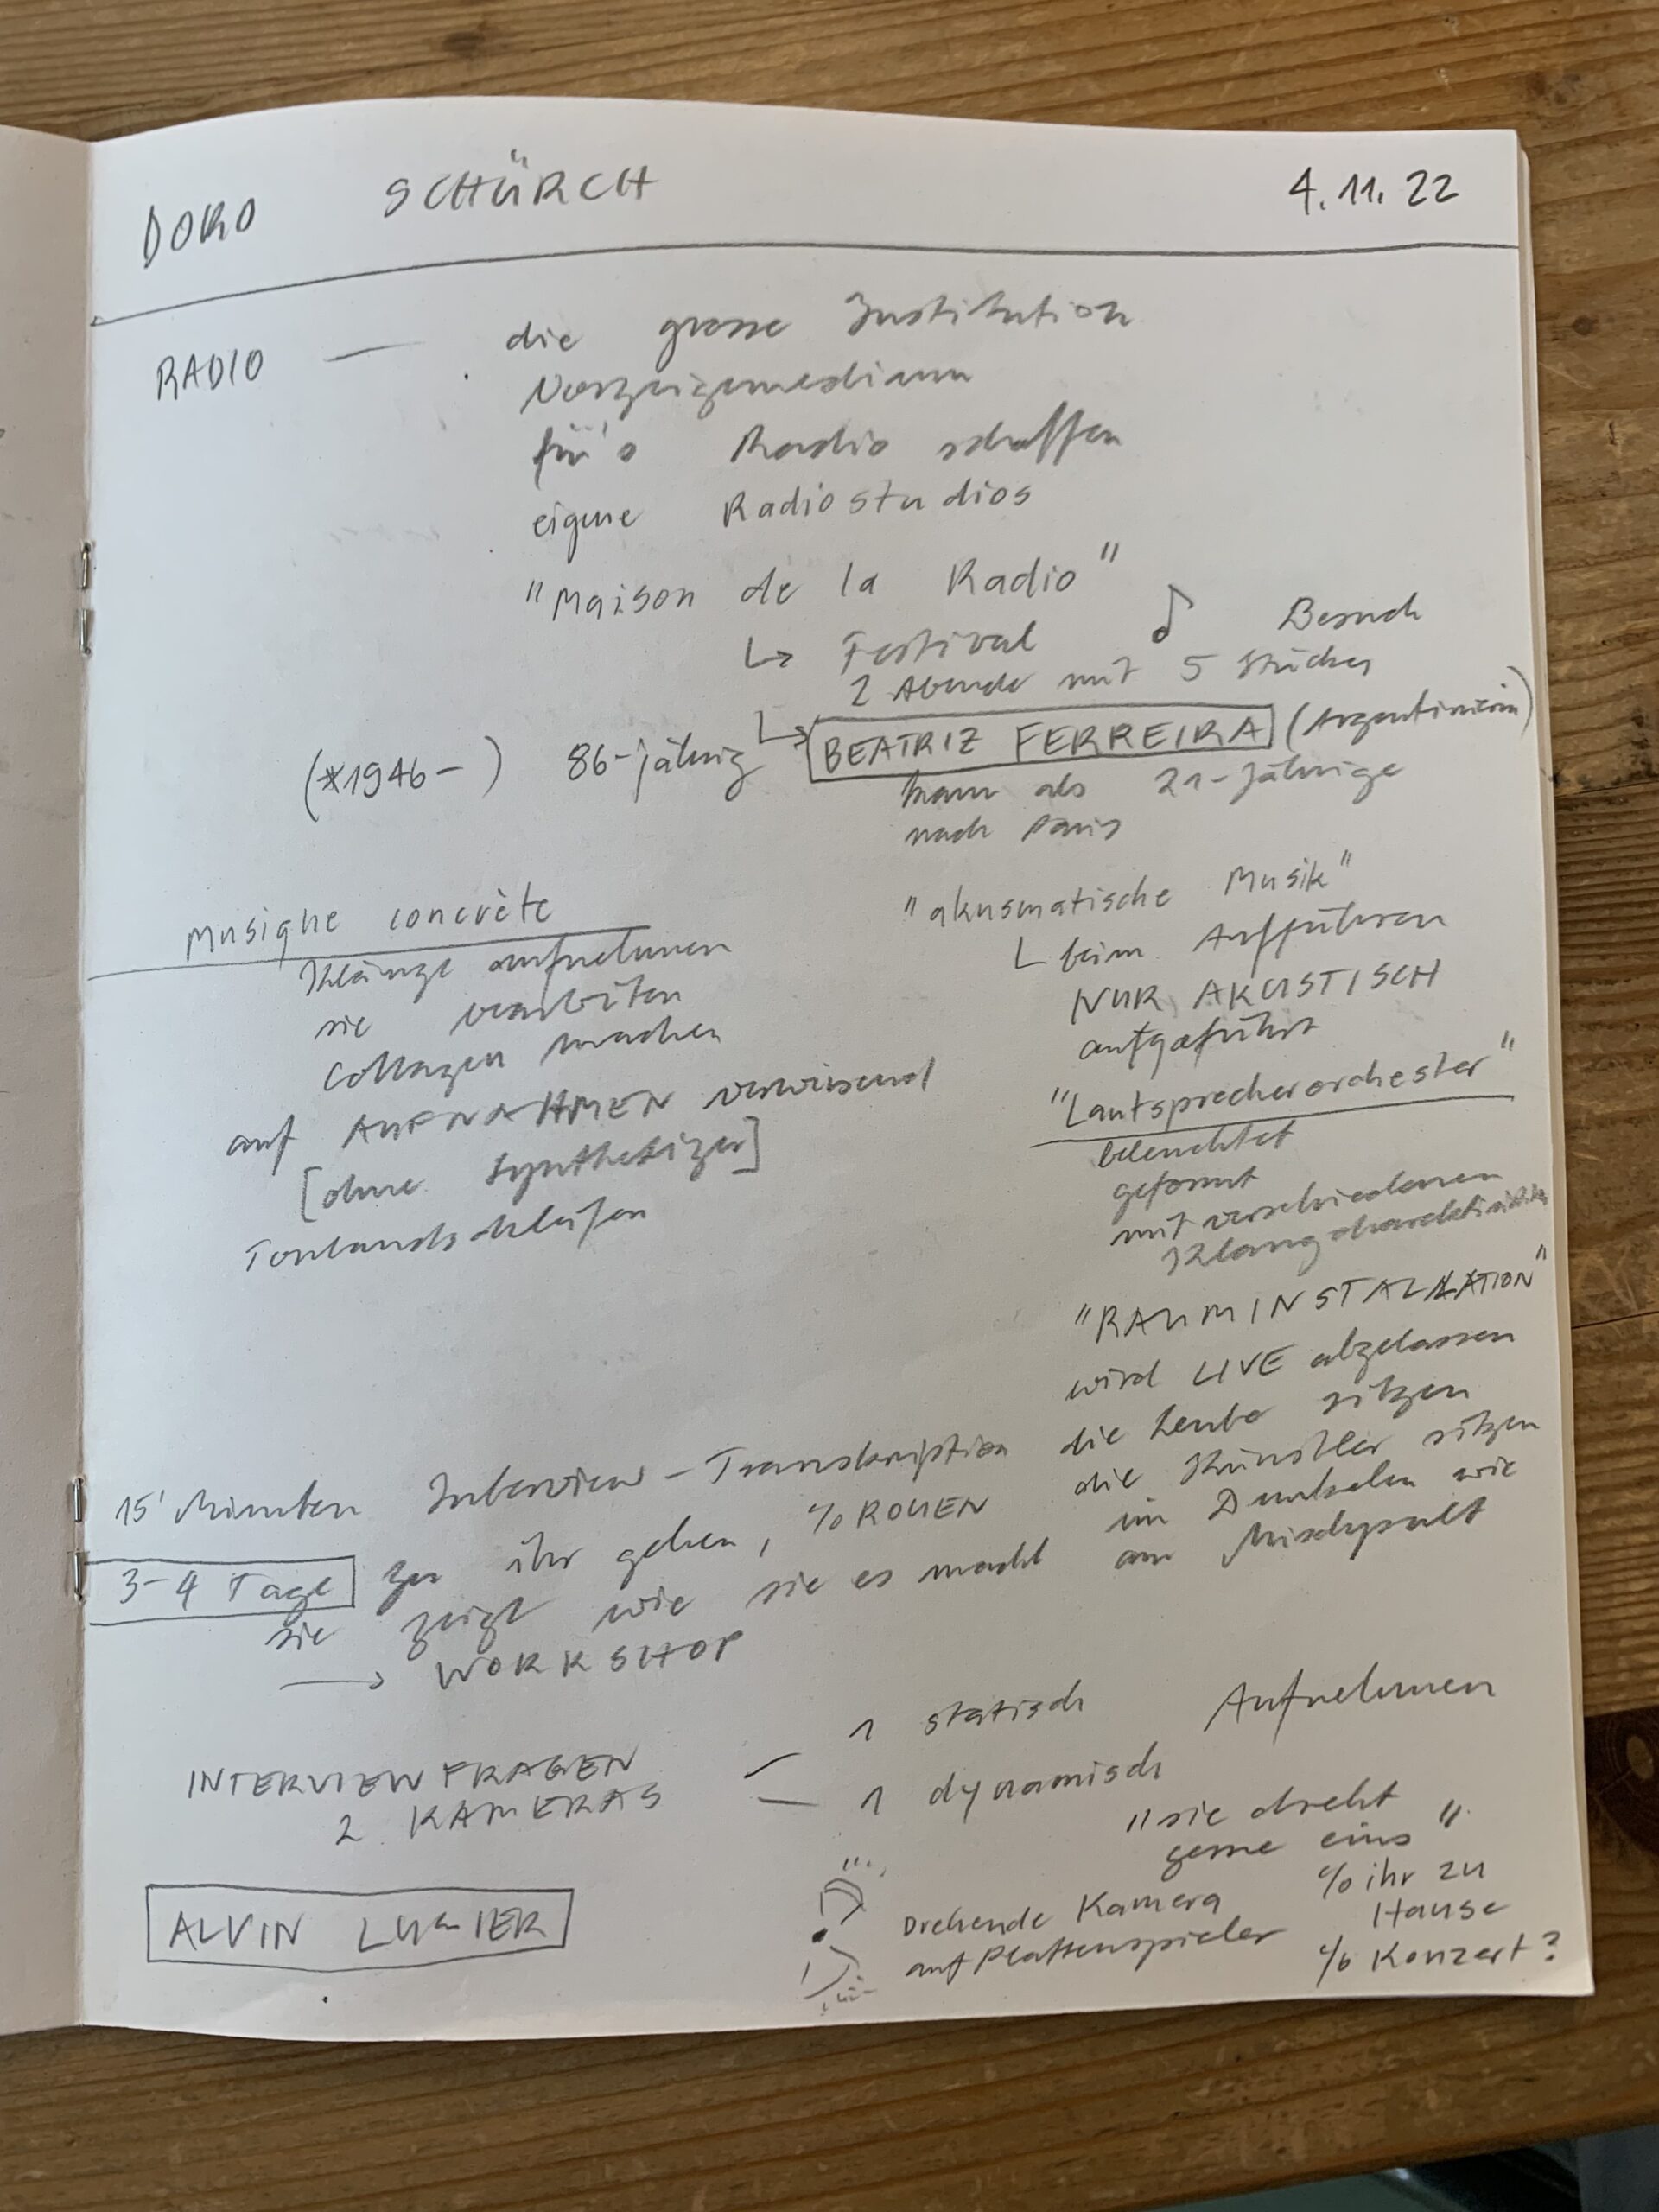 DORO SCHÜRCH 4.11.22
RADIO — die grosse Institution
Vorzeigemedium
für's Radio schaffen
eigene Radiostudios
"Maison de la Radio"
↳ Festival ♪ Besuch
2 Abende mit 5 Stücken
(*1946– ) 86-jährig ↳ BEATRIZ FERREIRA (Argentinierin)
kam als 21-jährige
nach Paris
Musique concrète
Klänge aufnehmen
sie verarbeiten
Collagen machen
auf AUFNAHMEN verweisend
[ohne Synthesizer]
Tonbandschleifen
"akusmatische Musik"
beim Aufführen
NUR AKUSTISCH
aufgeführt
"Lautsprecherorchester"
beleuchtet
geformt
mit verschiedenen
"RAUMINSTALLATION"
wird LIVE abgelassen
die Leute sitzen
die Künstler sitzen
im Dunkeln wie
am Mischpult
15' Minuten Interview – Transkription
3–4 Tage zu ihr gehen, % ROUEN
sie zeigt wie sie es macht
→ WORKSHOP
INTERVIEWFRAGEN
2 KAMERAS
— 1 statisch Aufnehmen
— 1 dynamisch
"sie dreht
gerne eins"
% ihr zu
Hause
% Konzert?
Drehende Kamera
auf Plattenspieler
ALVIN LUCIER